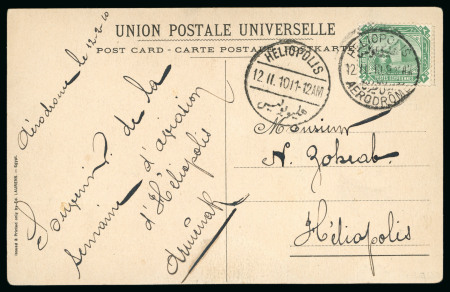 UNION POSTALE UNIVERSELLE
POST CARD - CARTE POSTALE - POSTKARTE
HELIOPOLIS
12.II.10/1-12AM
هليوبوليس
HELIOPOLIS
12.II.10
AERODROME
Aérodrome le 12-2-10
Souvenir de la
semaine d'aviation
d'Héliopolis
Monsieur
N. Zohrab
Héliopolis